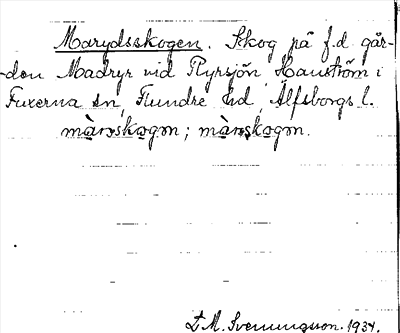 Marydsskogen. Skog på f.d. går-
-den Madryr vid Ryrsjön, Hanström i
Fuxerna sn, Flundre hd, Älfsborgs l.
màrnskogən; mànskogən.
L. M. Svenungsson. 1934.